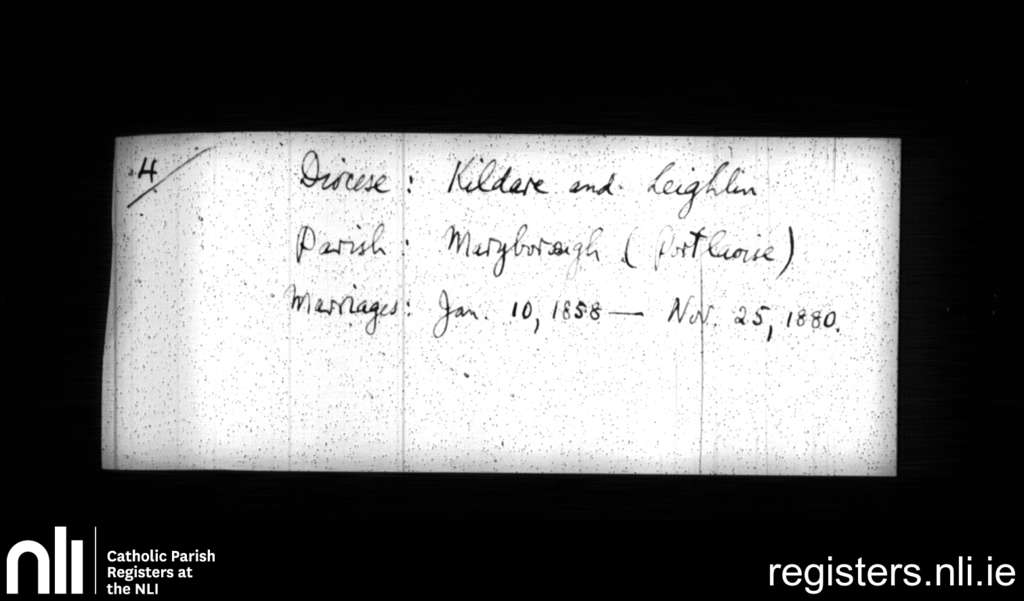 4
Diocese : Kildare and Leighlin
Parish : Maryborough ( Portlaoise )
Marriages : Jan. 10, 1858 — Nov. 25, 1880.
nli
Catholic Parish
Registers at
the NLI
registers.nli.ie